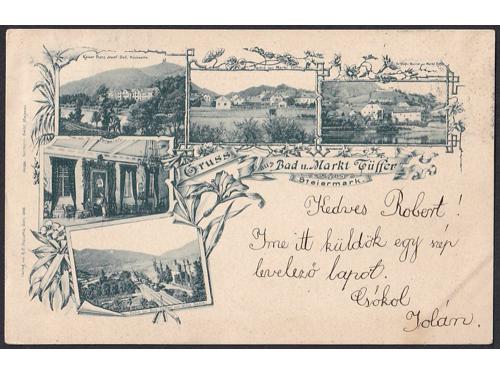 Kaiser Franz Josef Bad,
Gruss
aus Bad u. Markt Tüffer
Steiermark.
Kedves Robert!
Ime itt küldök egy szép
levelező lapot.
Csókol
Jolán.